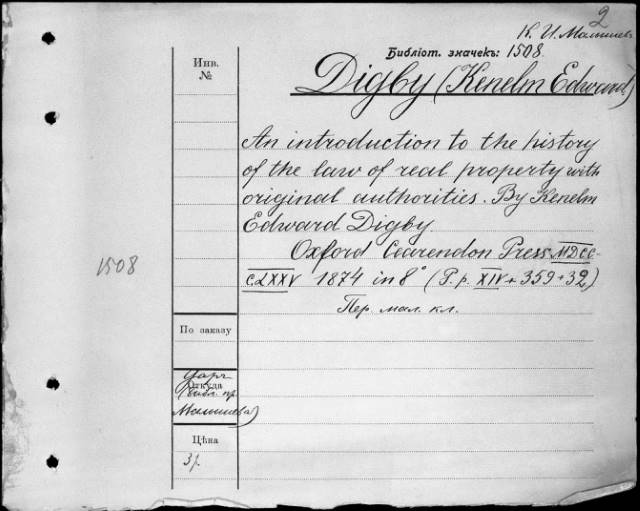 2
К. И. Малышев
Библіот. значекъ: 1508.
Инв.
№
Digby (Kenelm Edward)
An introduction to the history
of the law of real property with
original authorities. By Kenelm
Edward Digby
Oxford Clearendon Press MDCC-
CLXXV 1874 in 8° (P.p. XIV + 359 + 32)
Пер. мал. кл.
1508
По заказу
Откуда
(библ. пр.
Малышева)
Цѣна
3 р.